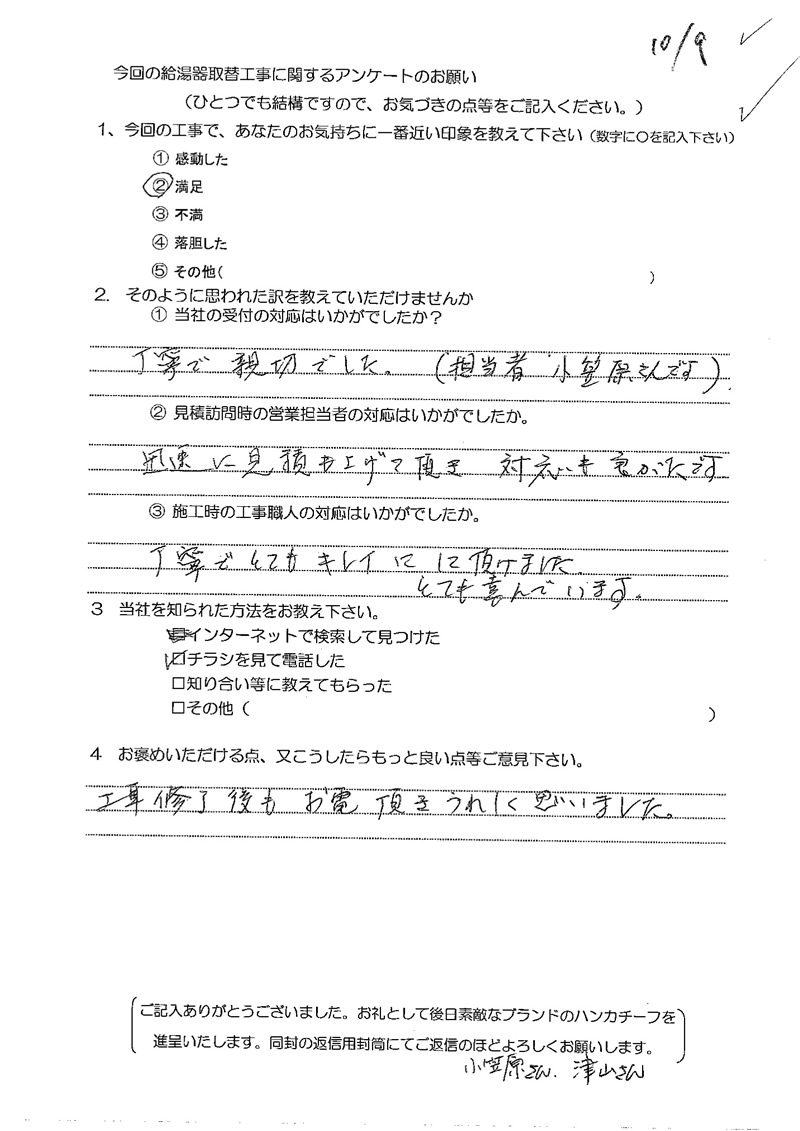 10/9
今回の給湯器取替工事に関するアンケートのお願い
(ひとつでも結構ですので、お気づきの点等をご記入ください。)
1、今回の工事で、あなたのお気持ちに一番近い印象を教えて下さい(数字に〇を記入下さい)
① 感動した
② 満足
③ 不満
④ 落胆した
⑤ その他( )
2. そのように思われた訳を教えていただけませんか
① 当社の受付の対応はいかがでしたか?
丁寧で親切でした。 (担当者 小笠原さんです)
② 見積訪問時の営業担当者の対応はいかがでしたか。
迅速に見積も上げて頂き 対応も
③ 施工時の工事職人の対応はいかがでしたか。
丁寧でとてもキレイにして頂けました
とても喜んでいます。
3 当社を知られた方法をお教え下さい。
インターネットで検索して見つけた
☑チラシを見て電話した
□知り合い等に教えてもらった
□その他( )
4 お褒めいただける点、又こうしたらもっと良い点等ご意見下さい。
工事修了後もお電頂きうれしく思いました。
ご記入ありがとうございました。お礼として後日素敵なブランドのハンカチーフを
進呈いたします。同封の返信用封筒にてご返信のほどよろしくお願いします。
小笠原さん、津山さん